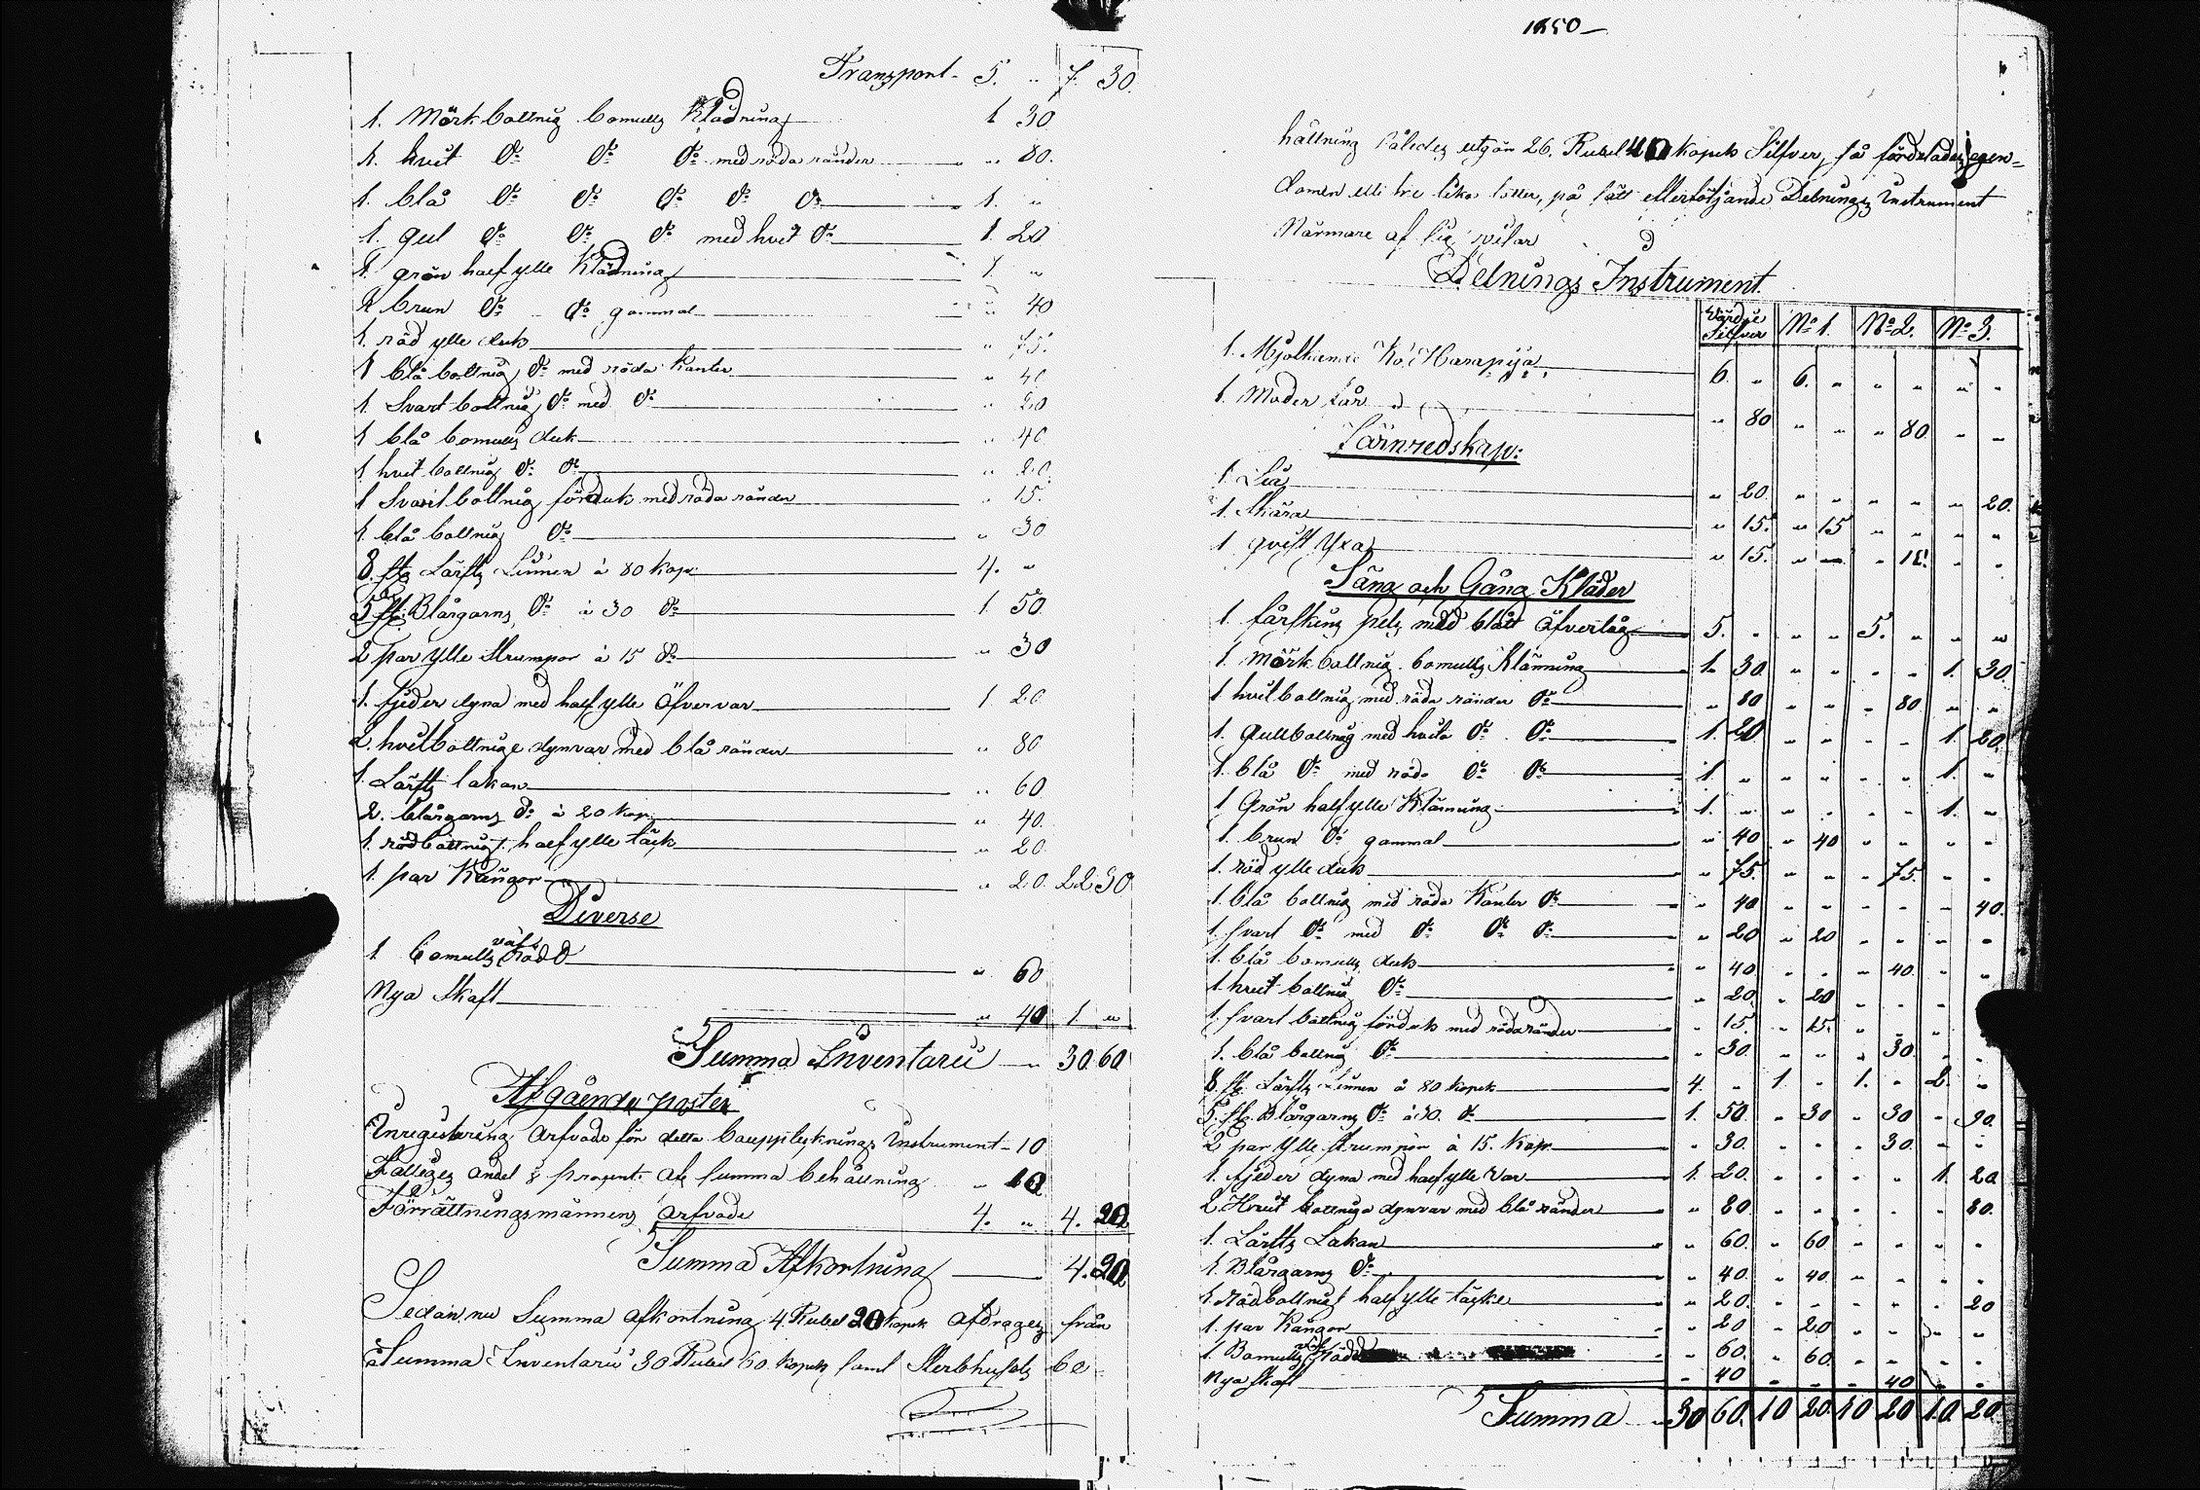 Transport 5. " 7. 30.
1. Mörk bottnig bomulls Klädning 1 30
1. hvit do do do med röda ränder " 80.
1. blå do do do do do 1. "
1. gul do do do med hvit do 1. 20
1. grön half ylle Klädning 1. "
1. brun do do gammal " 40
1. röd ylle duk " 75.
1 blå bottnig do med röda Kanter " 40
1. Svart bottnig do med do " 20
1 blå bomulls duk " 40
1 hvit bottnig do do " 20
1 Svart bottnig förduk med röda ränder " 15.
1. blå bottnig do " 30
8. st. Lärfts Linnen à 80 Kop. 4. "
5 st. Blårgarns do à 30 do 1 50
2 par ylle Strumpor à 15 do " 30
1. fjeder dyna med half ylle Öfvervar 1 20
2. hvitbottnige dynvar med blå ränder " 80
1. Lärfts lakan " 60
2. blårgarns do à 20 kop. " 40.
1. rödbottnigt half ylle täck " 20
1. par Kängor " 20. 22 30
Diverse
1 bomulls väfsked " 60
Nya Skaft " 40 1 "
Summa Inventarii 30 60
Afgående poster
Inregistering Arfvode för detta bouppteknings Instrument - 10
Fattiges andel ⅛ procent af Summa behållning " 10
Förrättningsmännens arfvode 4. " 4. 20
Summa Afkortning 4. 20
Sedan nu Summa afkortning 4 Rubel 20 kopek afdrages från
Summa Inventarii 30 Rubel 60 kopek samt Sterbhusets be-
1850 —
hållning således utgör 26. Rubel 40 kopek Silfver, så fördelades egen-
domen uti tre lika lotter, på sätt efterföljande Delnings Instrument
Närmare af sig visar
Delnings Instrument.
Värde Silfver No 1. No 2. No 3.
1. Mjölkande Ko, Harapija 6. " 6. " " " " "
1. Moder får " 80 " " " 80. " "
Järnredskap:
1 Lia " 20. " " " " " 20.
1. Skära " 15. " 15 " " " "
1 qvist Yxa " 15. " " " 15. " "
Säng och Gång Kläder
1 fårskins pels med blått Öfvertåg 5. " " " 5. " " "
1. Mörk bottnig bomulls Klänning 1. 30 " " " " 1. 30.
1 hvitbottnig med röda ränder do " 80 " " " 80 " "
1. Gulbottnig med hvita do do 1. 20 " " " " 1. 20.
1. blå do med röda do do 1 " " " " " 1. "
1 Grön half ylle Klänning 1. " " " " " 1. "
1. brun do gammal " 40 " 40 " " " "
1. röd ylle duk " 75. " " " 75. " "
1. blå bottnig med röda Kanter do " 40 " " " " " 40.
1. svart do med do do do " 20 " 20 " " " "
1. blå bomulls duk " 40 " " " 40. " "
1. hvit bottnig do " 20. " 20 " " "
1. svart bottnig förduk med röda ränder " 15. " 15. " " "
1. blå bottnig do " 30. " " " 30. " "
8. st. Lärfts Linnen à 80 kopek 4. " 1. " 1. " 2. "
5. st. Blårgarns do à 30. do 1. 50 " 30 " 30 " 90.
2 par ylle strumpor à 15. kop. " 30. " " " 30. " "
1. fjeder dyna med half ylle Var 1. 20. " " " " 1. 20
2. Hvit bottniga dynvar med blå ränder " 80. " " " " " 80.
1. Lärfts Lakan " 60. " 60 " " " "
2. Blårgarns do " 40. " 40. " " " "
1. Rödbottnigt half ylle täcke " 20. " " " " " 20
1. par Kängor " 20 " 20. " " " "
1. Bomulls " 60. " 60. " " " "
Nya Skaft " 40 " " " 40 " "
Summa 30 60. 10 20. 10 20 10. 20